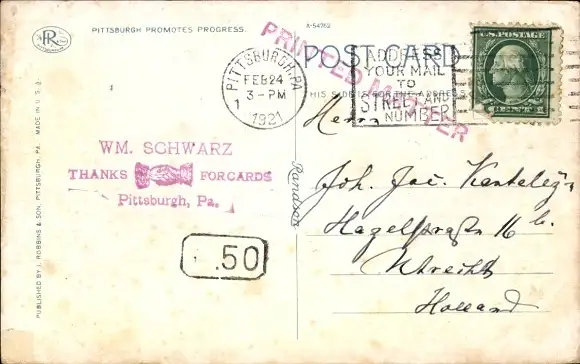 PITTSBURGH PROMOTES PROGRESS.
A-54762
POST CARD
PRINTED MATTER
PITTSBURGH, PA.
FEB 24
3-PM
1
1921
ADDRESS
YOUR MAIL
TO
STREET AND
NUMBER
THIS SIDE IS FOR THE ADDRESS
WM. SCHWARZ
THANKS FOR CARDS
Pittsburgh, Pa.
.50
PUBLISHED BY I. ROBBINS & SON, PITTSBURGH, PA. MADE IN U. S. A.
Herrn
Joh. Jac.
16 b.
Utrecht
Holland